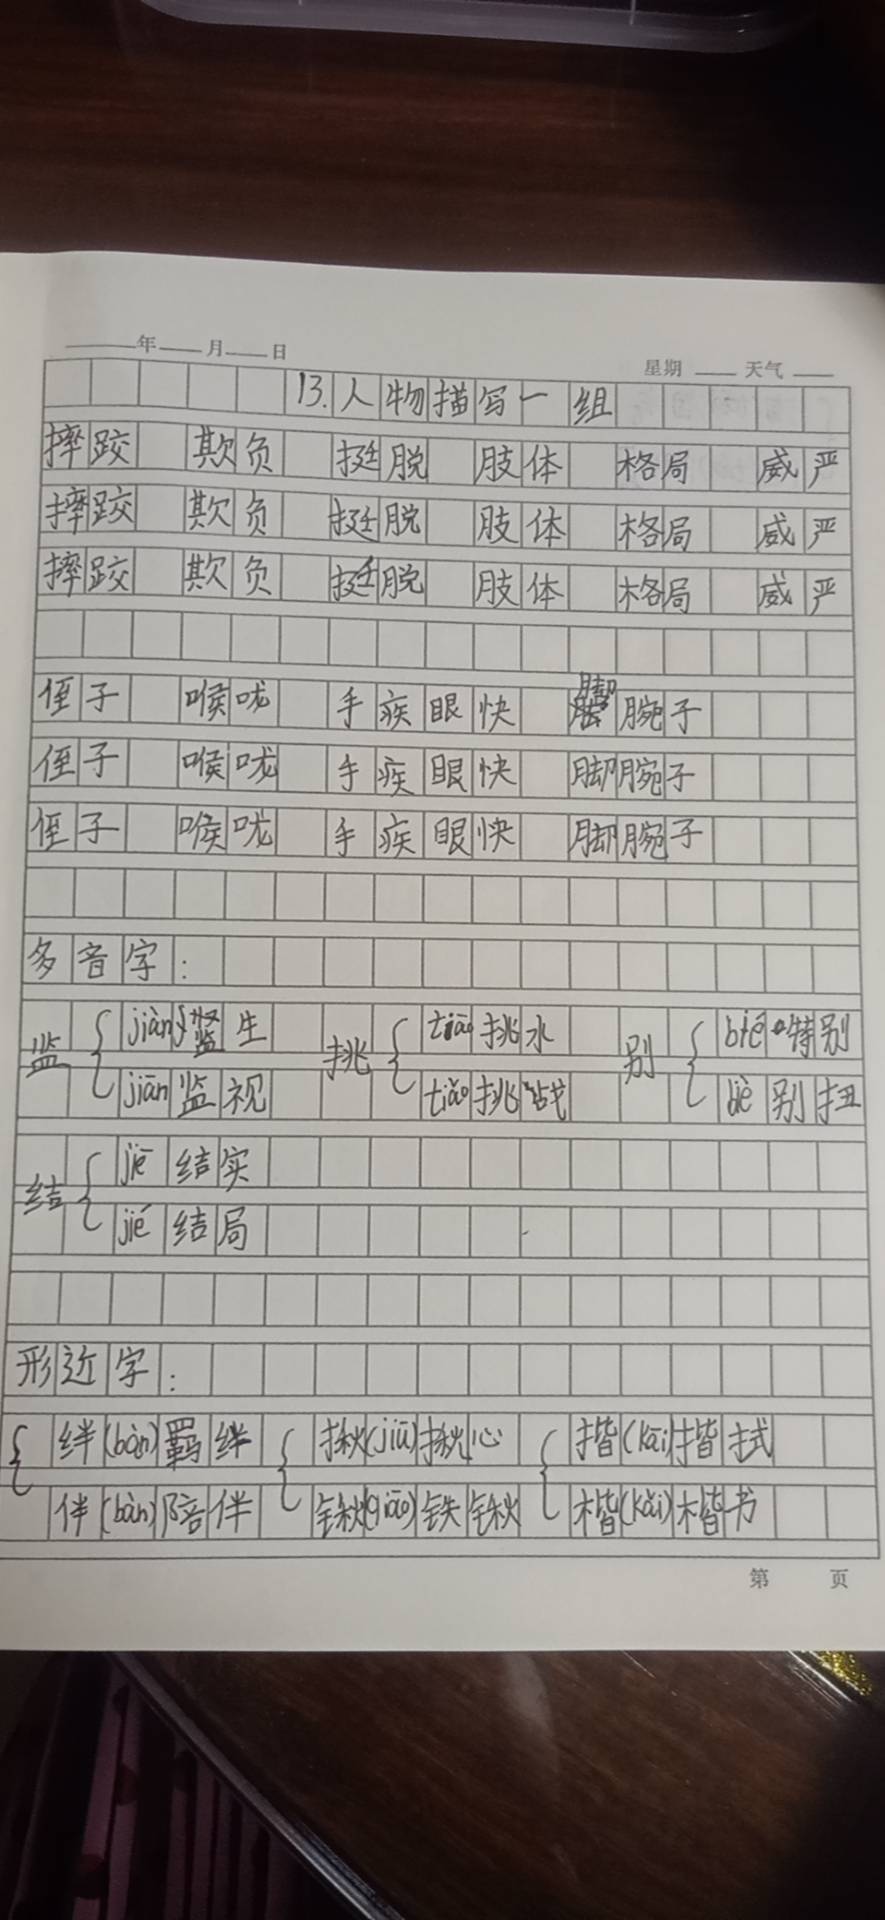 年 月 日 星期 天气
13.人物描写一组
摔跤 欺负 挺脱 肢体 格局 威严
摔跤 欺负 挺脱 肢体 格局 威严
摔跤 欺负 挺脱 肢体 格局 威严
侄子 喉咙 手疾眼快 脚腕子
侄子 喉咙 手疾眼快 脚腕子
侄子 喉咙 手疾眼快 脚腕子
多音字:
监 { jiàn 监生 挑 { tiāo 挑水 别 { bié 特别
jiān 监视 tiǎo 挑战 biè 别扭
结 { jiē 结实
jié 结局
形近字:
{ 绊(bàn)羁绊 { 揪(jiū)揪心 { 揩(kāi)揩拭
伴(bàn)陪伴 锹(qiāo)铁锹 楷(kǎi)楷书
第 页